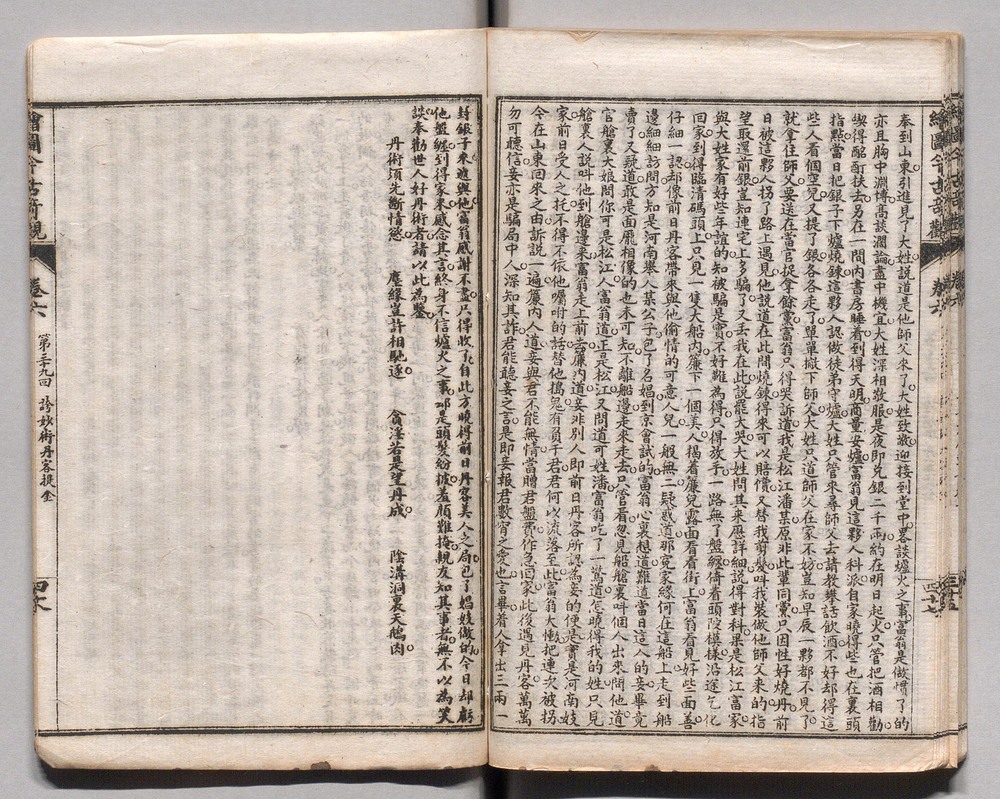 繪圖今古奇觀 卷六 四十七
奉到山東引進見了大姓說道是他師父來了大姓致敬迎接到堂中畧談爐火之事富翁是做慣了的
亦且胸中淵博高談濶論盡中機宜大姓深相敬服是夜即兌銀二千兩約在明日起火只管把酒相勸
喫得酩酊扶去另在一間內書房睡着到得天明商量安爐富翁見這夥人科派自家曉得些也在裏頭
指點當日把銀子下爐燒鍊這夥人認做徒弟守爐大姓只管來尋師父去請教攀話飲酒不好却得這
些人看個空兒又提了銀各各走了單單撇下師父大姓只道師父在家不妨豈知早辰一夥都不見了
就拿住師父要送在當官捉拿餘黨富翁只得哭訴道我是松江潘某原非此輩同黨只因性好燒丹前
日被這夥人拐了路上遇見他說道在此間燒鍊得來可以賠償又替我剪髮呌我裝做他師父來的指
望取還前銀豈知連宅上多騙了又丟我在此說罷大哭大姓問其來歷詳細說得對科果是松江富家
與大姓家有好些年誼的知被騙是實不好難為得只得放手一路無了盤纏倚着頭陀模樣沿途乞化
回家到得臨清碼頭上只見一隻大船內簾下一個美人揭着簾兒露面看着街上富翁看見好些面善
仔細一認却像前日丹客帶來與他偷情的可意人兒一般無二疑惑道那冤家緣何在這船上走到船
邊細細訪問方知是河南舉人某公子包了名娼到京會試的富翁心裏想道難道當日這人的妾畢竟
賣了又疑道敢是面龐相像的也未可知不離船邊走來走去只管看忽見船艙裏呌個人出來問他道
官艙裏大娘問你可是松江人富翁道正是松江又問道可姓潘富翁吃了一驚道怎曉得我的姓只見
艙裏人說呌他到艙邊來富翁走上前去簾內道妾非別人即前日丹客所認為妾的便是實是河南妓
家前日受人之托不得不依他囑咐的話替他搗鬼有負于君君何以流落至此富翁大慟把連次被拐
今在山東回來之由訴說一遍簾內人道妾與君不能無情當贈君盤費作急回家此後遇見丹客萬萬
勿可聽信妾亦是騙局中人深知其詐君能聽妾之言是即妾報君數宵之愛也言畢着人拿出三兩一
封銀子來遞與他富翁感謝不盡只得收了自此方曉得前日丹客美人之局包了娼妓做的今日却虧
他盤纏到得家來感念其言終身不信爐火之事却是頭髮紛披羞顏難掩親友知其事者無不以為笑
談奉勸世人好丹術者請以此為鑒
丹術須先斷情慾 塵緣豈許相馳逐 貪淫若是望丹成 陰溝洞裏天鵝肉
繪圖今古奇觀 卷六 第三十九回 誇妙術丹客提金 四十八